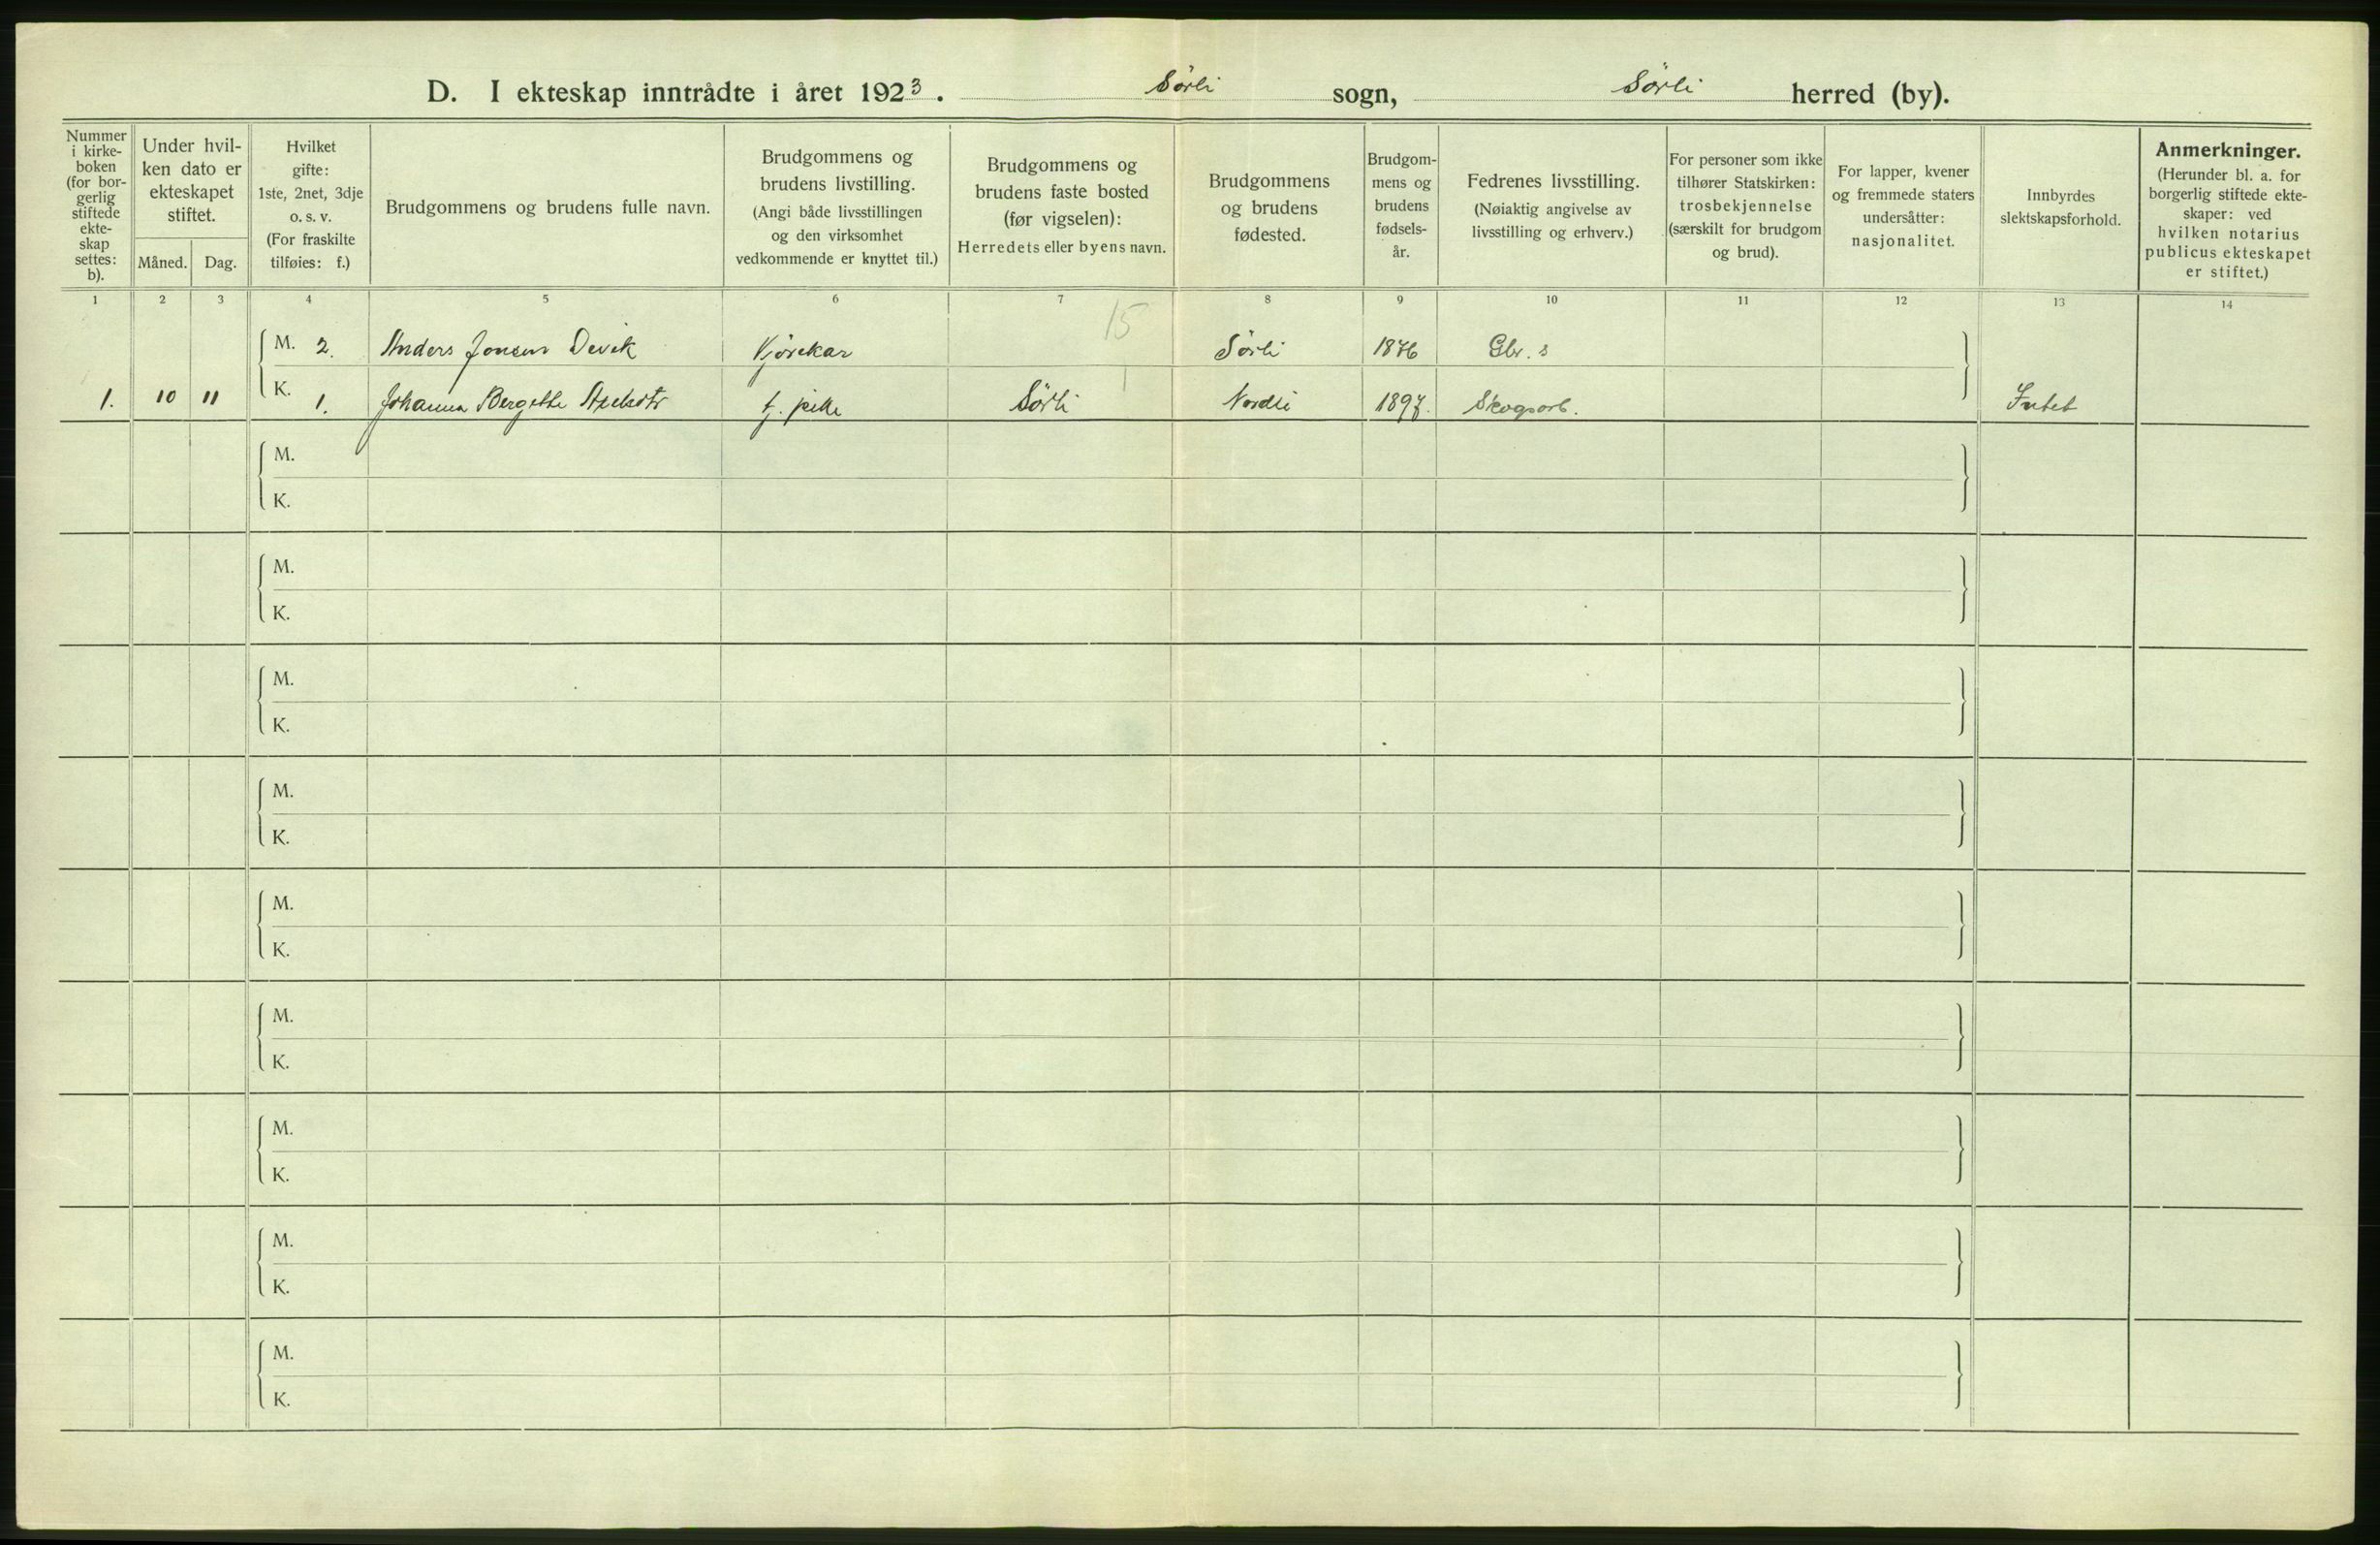 D. I ekteskap inntrådte i året 1923. Sørli sogn, Sørli herred (by).
Nummer i kirke-boken (for bor-gerlig stiftede ekte-skap settes: b).
Under hvil-ken dato er ekteskapet stiftet.
Måned. Dag.
Hvilket gifte: 1ste, 2net, 3dje o. s. v. (For fraskilte tilføies: f.)
Brudgommens og brudens fulle navn.
Brudgommens og brudens livstilling. (Angi både livsstillingen og den virksomhet vedkommende er knyttet til.)
Brudgommens og brudens faste bosted (før vigselen): Herredets eller byens navn.
Brudgommens og brudens fødested.
Brudgom-mens og brudens fødsels-år.
Fedrenes livsstilling. (Nøiaktig angivelse av livsstilling og erhverv.)
For personer som ikke tilhører Statskirken: trosbekjennelse (særskilt for brudgom og brud).
For lapper, kvener og fremmede staters undersåtter: nasjonalitet.
Innbyrdes slektskapsforhold.
Anmerkninger. (Herunder bl. a. for borgerlig stiftede ekte-skaper: ved hvilken notarius publicus ekteskapet er stiftet.)
1 2 3 4 5 6 7 8 9 10 11 12 13 14
15
M. 2. Anders Jonsen Devik Kjørekar Sørli 1876 Gbr. s
1. 10 11 K. 1. Johanna Bergitte t. pike Sørli Nordli 1897. Skogsarb. Intet
M.
K.
M.
K.
M.
K.
M.
K.
M.
K.
M.
K.
M.
K.
M.
K.
M.
K.